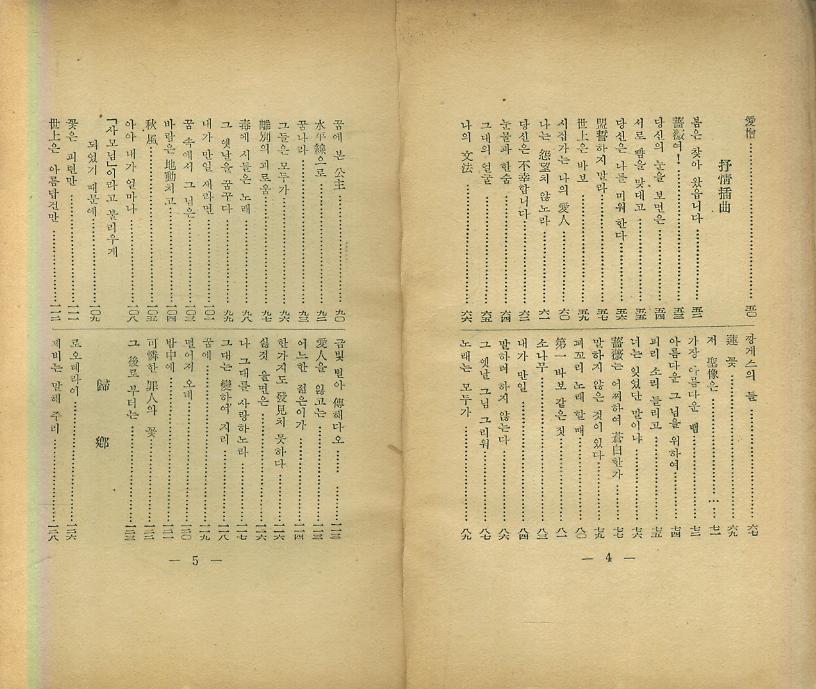 愛憎……五〇
抒情揷曲
봄은 찾아 왔읍니다……五二
薔薇여!……五三
당신의 눈을 보면은……五四
서로 뺨을 맞대고……五五
당신은 나를 미워 한다……五六
盟誓하지 말라……五七
世上은 바보……五九
시집가는 나의 愛人……六〇
나는 怨望치 않노라……六一
당신은 不幸합니다……六二
눈물과 한숨……六四
그대의 얼굴……六五
나의 文法……六六
깡게스의 들……六七
蓮꽃……六九
저 聖像은……七一
가장 아름다운 뺨……七二
아름다운 그 님을 위하여……七四
피리 소리 들리고……七五
너는 잊었단 말이냐……七六
薔薇는 어쩌하여 蒼白한가……七七
말하지 않은 것이 있다……七九
꾀꼬리 노래 할 때……八〇
第一 바보 같은 짓……八一
소나무……八三
내가 만일……八四
말하려 하지 않는다……八六
그 옛날 그님 그리워……八七
노래는 모두가……八九
— 4 —
꿈에 본 公主……九〇
水平線으로……九二
꿈나라……九三
그들은 모두가……九六
離別의 괴로움……九七
毒에 시들은 노래……九八
그 옛날을 꿈꾸다……九九
내가 만일 새라면……一〇一
꿈 속에서 그 님은……一〇三
바람은 地動치고……一〇四
秋風……一〇五
아아 내가 얼마나……一〇八
「사모님」이라고 불리우게
되었기 때문에……一〇九
꽃은 피련만……一一一
世上은 아름답건만……一一二
금빛 별아 傳해다오……一一三
愛人을 잃고는……一一三
어느한 젊은이가……一一四
한가지도 發見치 못하다……一一六
싫것 울면은……一一六
나 그대를 사랑하노라……一一七
그대는 變하여 지리……一一八
꿈에……一一九
떨어져 오네……一二〇
밤中에……一二一
可憐한 罪人와 꽃……一二二
그 後로 부터는……一二三
歸鄕
로오레라이……一二六
제비는 말해 주리……一二八
— 5 —